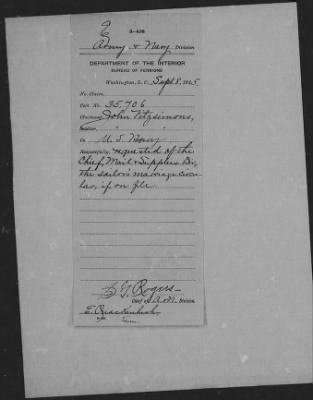 3-498
Army & Navy Division
DEPARTMENT OF THE INTERIOR
BUREAU OF PENSIONS
Washington, D. C. Sept 8, 1925
No. Claim
Cert. No. 35,706
Claimant John Fitzsimons,
Soldier " "
Co. U. S. Navy
Respectfully requested of the
Chief, Mail & Supplies Div,
the sailor's marriage circu-
lar, if on file
Rogers
Chief A. & N. Division
E. Quackenbush